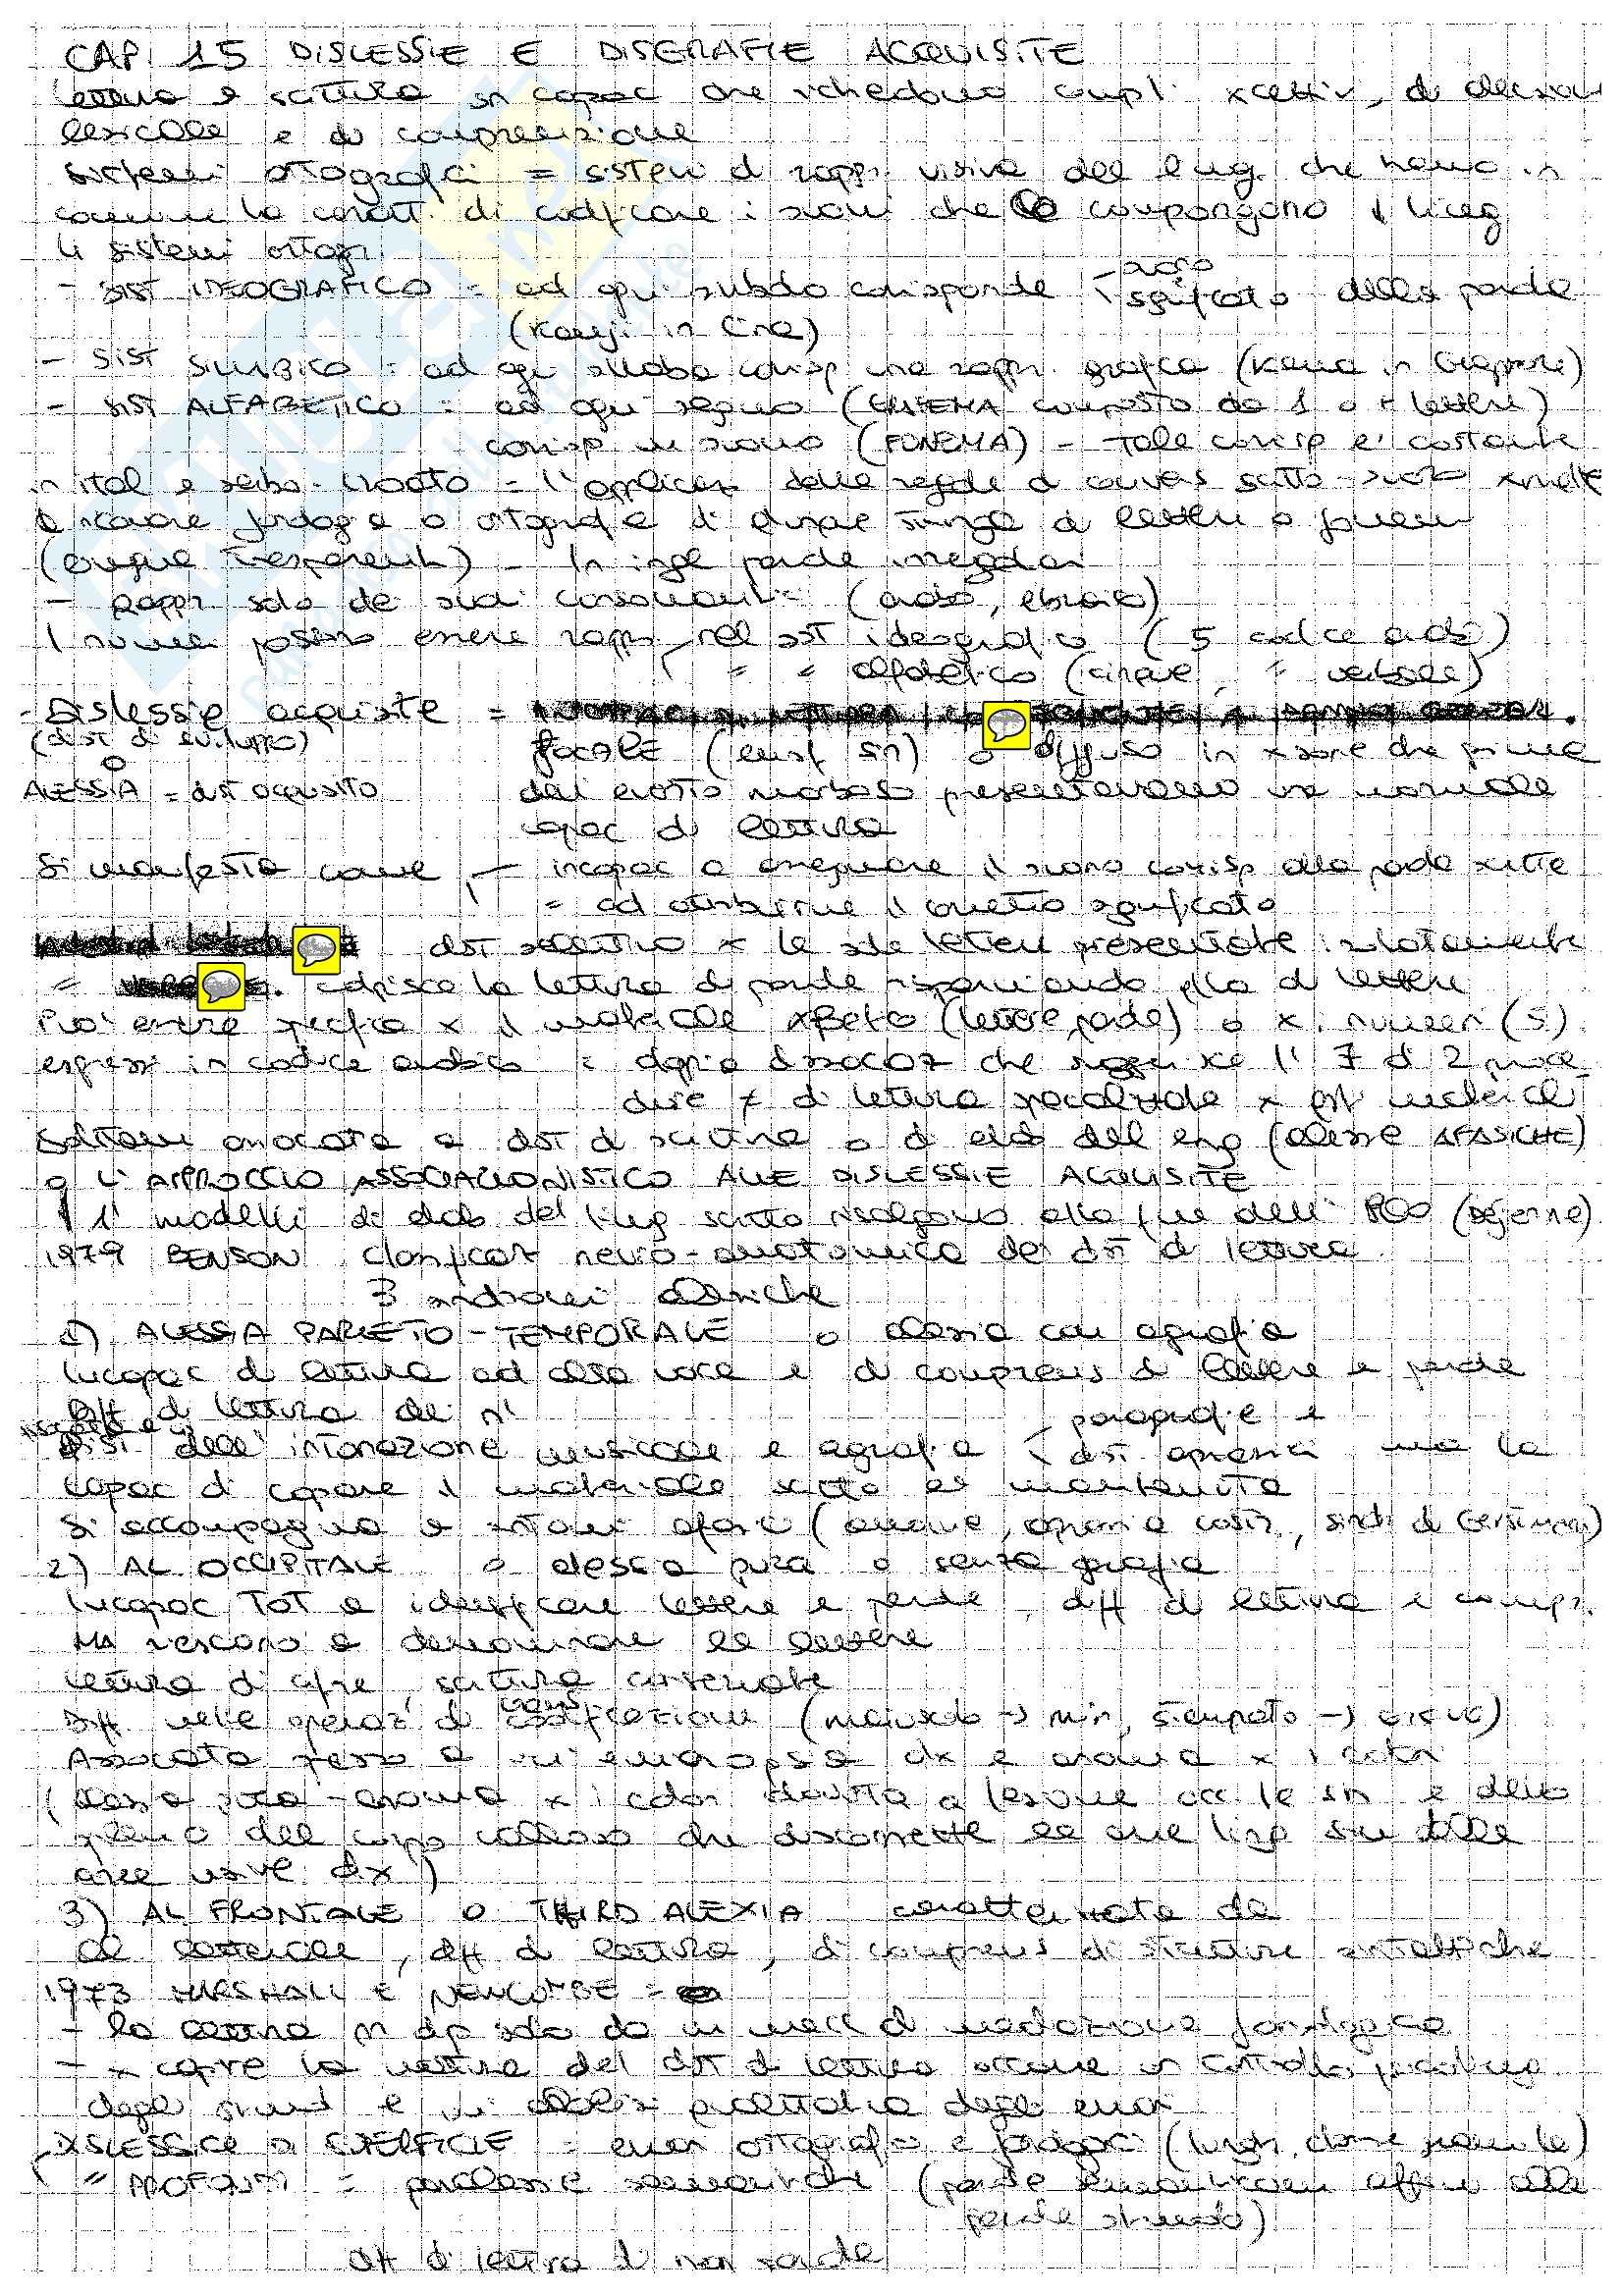 CAP. 15 DISLESSIE E DISGRAFIE ACQUISITE
lettura e scrittura sn capac che richiedono compli xcettiv, di decisione
lessicale e di comprensione
sistemi ortografici = sistemi di rappr visiva del ling. che hanno in
comune la caratt. di codificare i suoni che compongono il ling
4 sistemi ortogr.
- SIST IDEOGRAFICO = ad ogni simbolo corrisponde suono significato della parola
(Kanji in Cina)
- SIST SILLABICO = ad ogni sillaba corrisp una rappr. grafica (Kana in Giappone)
- SIST ALFABETICO = ad ogni segno (GRAFEMA composto da 1 o + lettere)
corrisp un suono (FONEMA) - tale corrisp e' costante
in ital e serbo-croato = l'applicaz delle regole di convers scritto → suono
di ricavare fonologia o ortografia di stringe di lettere o fonemi
(lingue trasparenti) - In ingl parole irregolari
- rappr solo dei suoni consonantici (arabo, ebraico)
I numeri possono essere rappr nel sist ideografico (5 codice arabo)
= = alfabetico (cinque, = verbale)
- Dislessie acquisite =
(dist di sviluppo) FOCALE (emisf sn) o diffuso in xsone che prima
o
ALESSIA = dist acquisito dell'evento morboso presentavano una normale
capac di lettura
Si manifesta come - incapac a assegnare il suono corrisp alla parola scritta
= ad attribuirne il corretto significato
dist selettivo x le sole lettere presentate isolatamente
= colpisce la lettura di parole risparmiando qlla di lettere
Puo' essere specifica x il materiale alfabetico (lettere, parole) o x i numeri (5)
espressi in codice arabico = doppia dissociaz che suggerisce l' 7 di 2 proce
dure ≠ di lettura specializzate x qst materiali
Solitam associata a dist di scrittura o di elab del ling (alessie AFASICHE)
o L'APPROCCIO ASSOCIAZIONISTICO ALLE DISLESSIE ACQUISITE
I 1' modelli di elab del ling scritto risalgono alla fine dell' 800 (Dejerine)
1979 BENSON classificaz neuro-anatomica dei dist di lettura
3 sindromi alessiche
1) ALESSIA PARIETO-TEMPORALE o alessia con agrafia
Incapac di lettura ad alta voce e di comprens di lettere e parole
Diff di lettura dei n'
dist. dell'intonazione musicale e agrafia - paragrafie e dist aprassici ma la
capac di copiare il materiale scritto e' mantenuta
Si accompagna a sintomi afasici (anomie, aprassia costr, sindr di Gerstmann)
2) AL OCCIPITALE o alessia pura o senza agrafia
Incapac TOT a identificare lettere e parole, diff di lettura e compr.
MA riescono a denominare le lettere
lettura di cifre, scrittura conservate
Diff. nelle operaz di transcodificazione (maiuscolo → min, stampato → corsivo)
Associata spesso a emianopsia dx e anomia x i colori
(alessia pura - anomia x i colori dovuta a lesione occ le sn e dello
splenio del corpo calloso che disconnette le aree ling sn dalle
aree visive dx)
3) AL FRONTALE o THIRD ALEXIA caratterizzata da
al letterale, diff di lettura, di comprens di strutture sintattiche
1973 MARSHALL E NEWCOMBE =
- la lettura nn dip solo da un mecc di mediazione fonologica
- x capire la natura dei dist di lettura occorre un controllo psicoling
degli stimoli e un'analisi qualitativa degli errori
DISLESSICI DI SUPERFICIE = errori ortografici e fonologici
= PROFONDI = paralessie semantiche (parole semanticam affini alla
parola stimolo)
diff di lettura di non parole